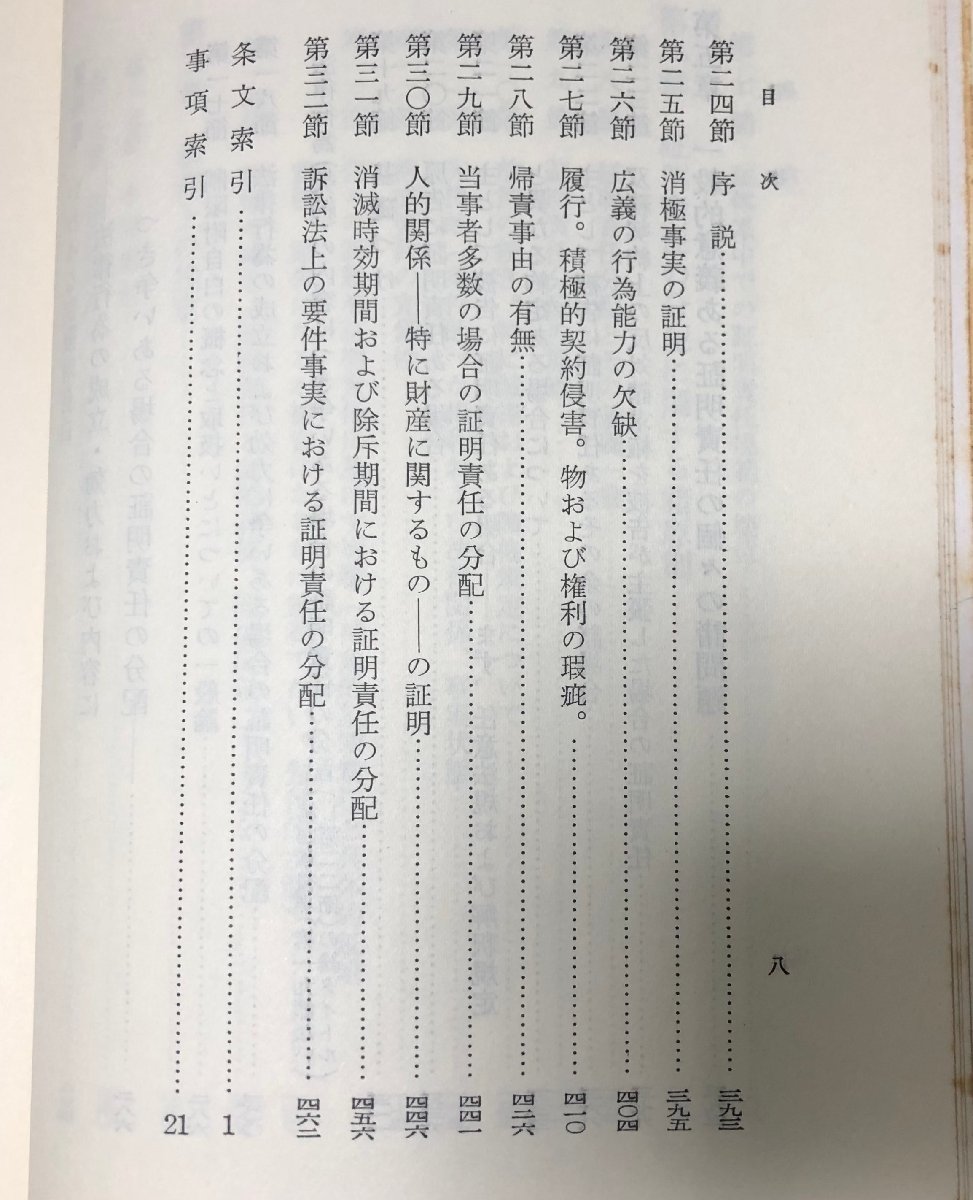 目次
八
第二四節 序説……三九三
第二五節 消極事実の証明……三九五
第二六節 広義の行為能力の欠缺……四〇四
第二七節 履行。積極的契約侵害。物および権利の瑕疵。……四一〇
第二八節 帰責事由の有無……四二六
第二九節 当事者多数の場合の証明責任の分配……四四一
第三〇節 人的関係——特に財産に関するもの——の証明……四四六
第三一節 消滅時効期間および除斥期間における証明責任の分配……四五六
第三二節 訴訟法上の要件事実における証明責任の分配……四六二
条文索引……1
事項索引……21